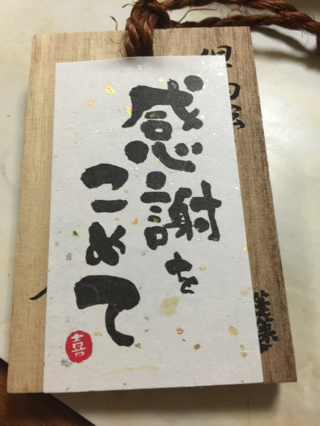 感謝を
こめて
喜